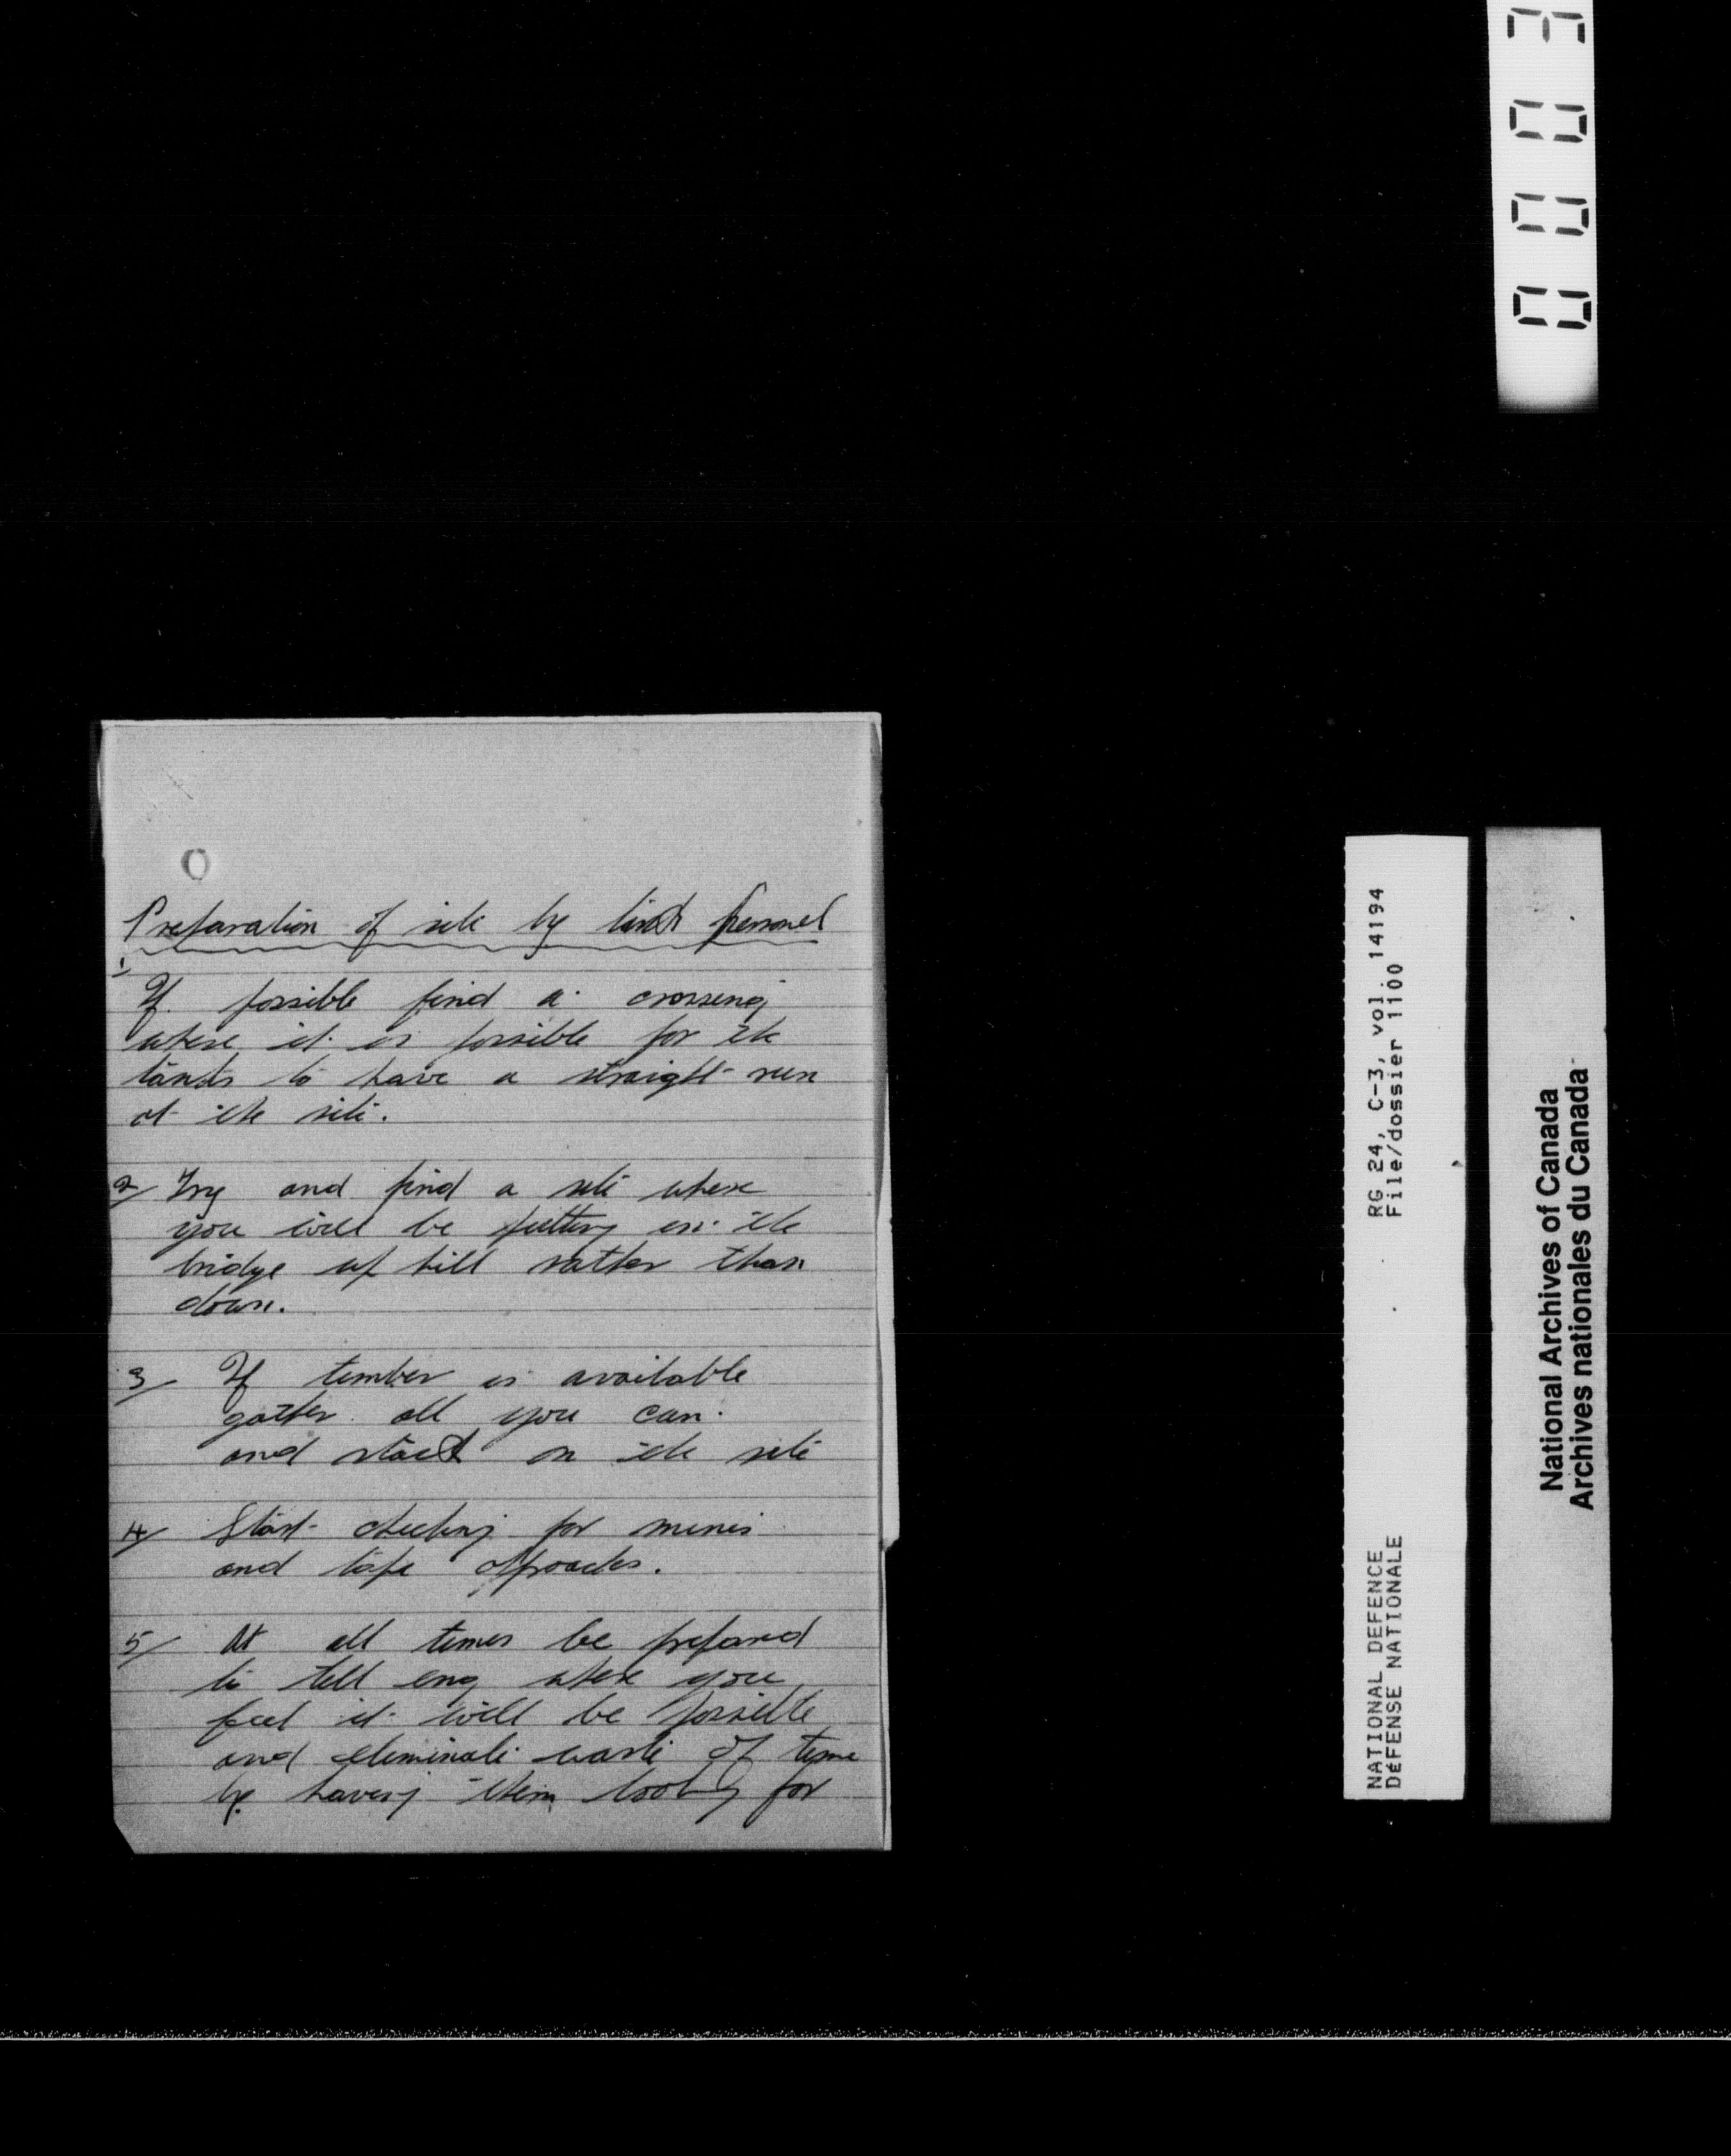 Preparation of site by tank personel
1/
If possible find a crossing
where it is possible for the
tanks to have a straight run
at the site.
2/ Try and find a site where
you will be putting in the
bridge up hill rather than
down.
3/ If timber is available
gather all you can
and stack on the site
4/ Start checking for mines
and tape approaches.
5/ At all times be prepared
to tell eng where you
feel it will be possible
and eliminate waste of time
by having them looking for
0003
RG 24, C-3, vol. 14194
File/dossier 1100
NATIONAL DEFENCE
DéFENSE NATIONALE
National Archives of Canada
Archives nationales du Canada